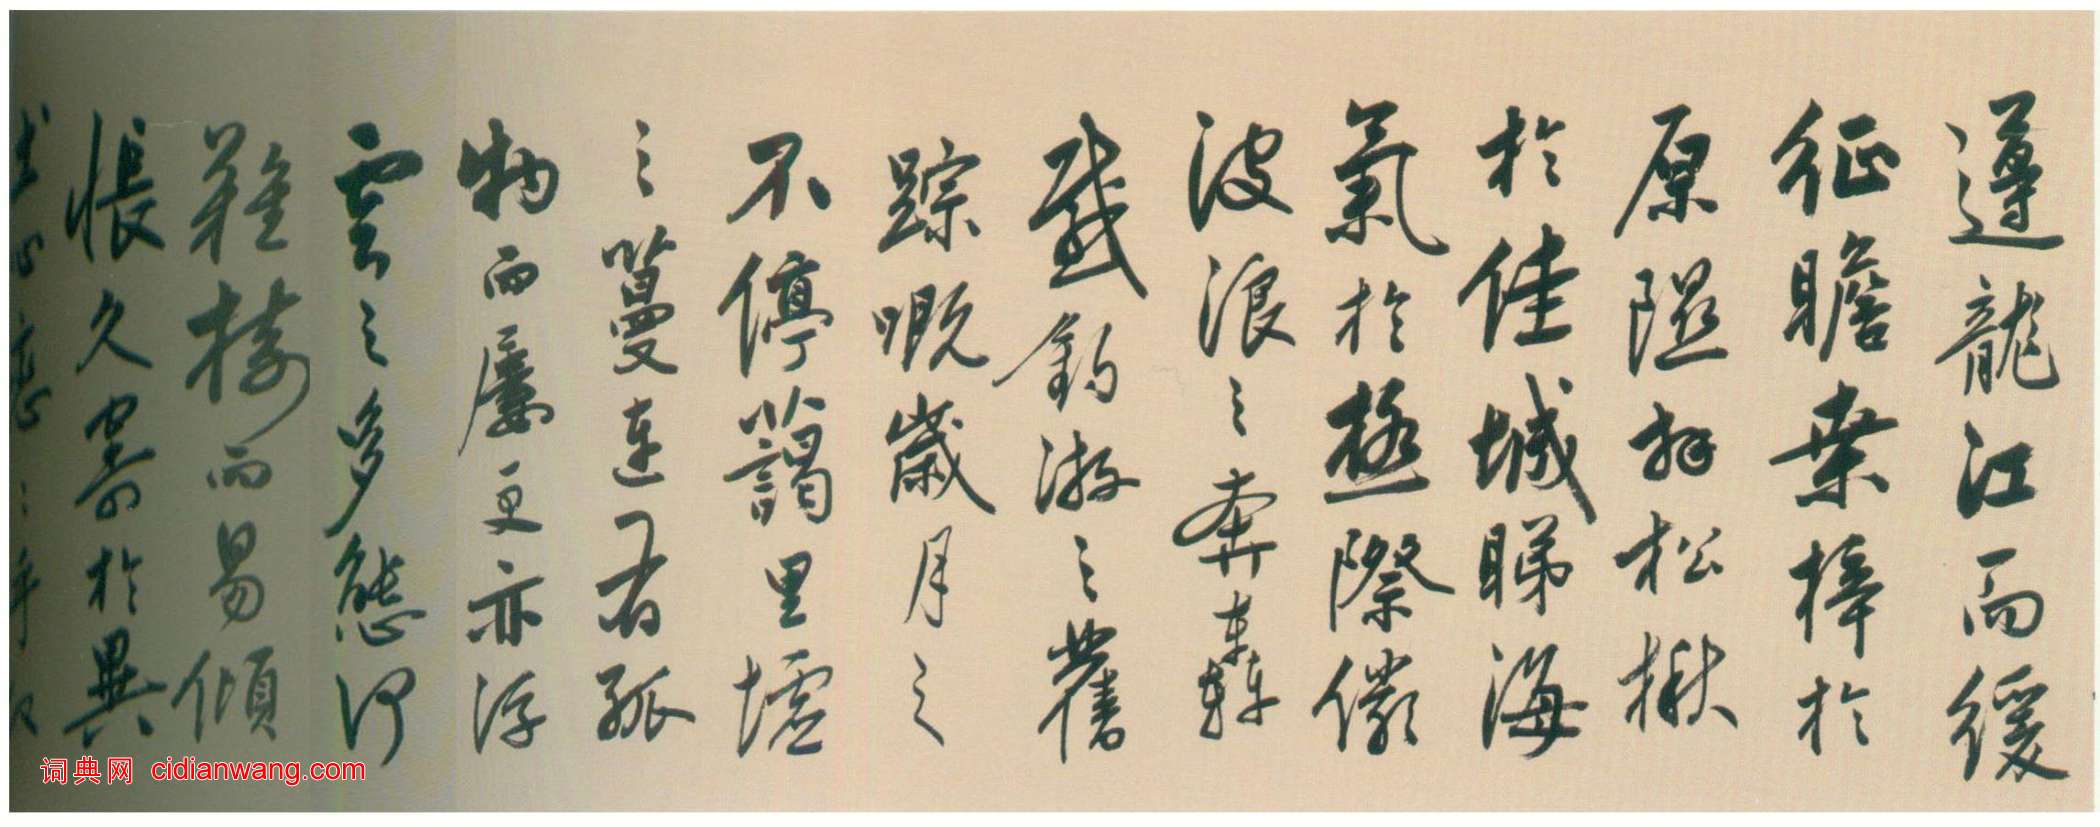 遵龍江而緩
征瞻桒梓於
原隰拜松楸
於佳城睇海
氣於極際儼
波浪之奔轟
感釣游之舊
踪嘅歲月之
不停藹里墟
之蔓連孤
物而屢更亦浮
雲之多態何
難接而易傾
悵久寄於異
词典网 cidianwang.com